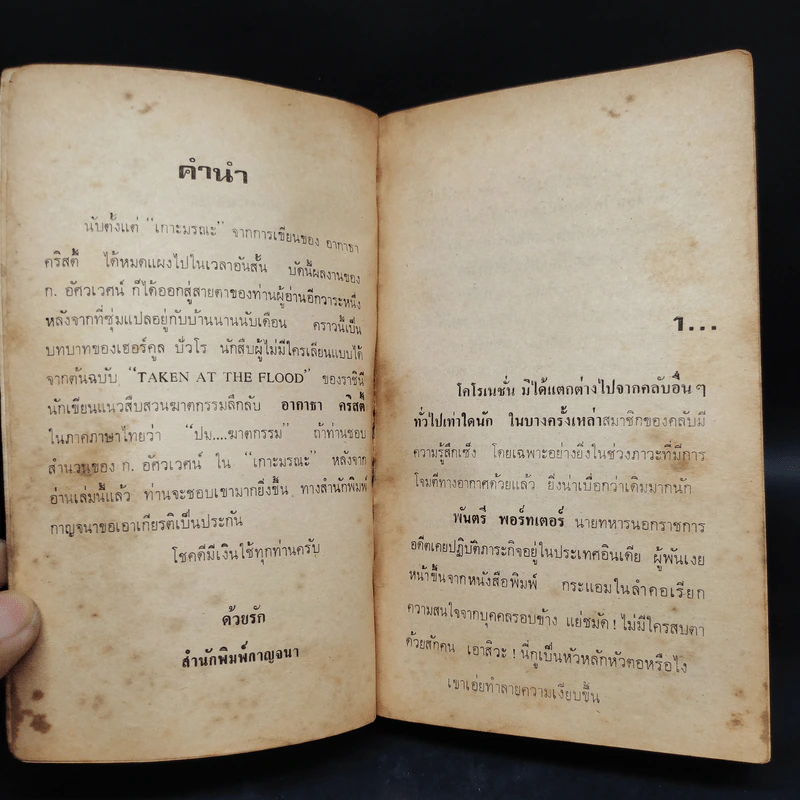 คำนำ
นับตั้งแต่ “เกาะมรณะ” จากการเขียนของ อากาธา
คริสตี้ ได้หมดแผงไปในเวลาอันสั้น บัดนี้ผลงานของ
ก. อัศวเวศน์ ก็ได้ออกสู่สายตาของท่านผู้อ่านอีกวาระหนึ่ง
หลังจากที่ซุ่มแปลอยู่กับบ้านนานนับเดือน คราวนี้เป็น
บทบาทของเฮอร์คูล ปัวโร นักสืบผู้ไม่มีใครเลียนแบบได้
จากต้นฉบับ “TAKEN AT THE FLOOD” ของราชินี
นักเขียนแนวสืบสวนฆาตกรรมลึกลับ อากาธา คริสตี้
ในภาคภาษาไทยว่า “ปม....ฆาตกรรม” ถ้าท่านชอบ
สำนวนของ ก. อัศวเวศน์ ใน “เกาะมรณะ” หลังจาก
อ่านเล่มนี้แล้ว ท่านจะชอบเขามากยิ่งขึ้น ทางสำนักพิมพ์
กาญจนาขอเอาเกียรติเป็นประกัน
โชคดีมีเงินใช้ทุกท่านครับ
ด้วยรัก
สำนักพิมพ์กาญจนา
1...
โคโรเนชั่น มิได้แตกต่างไปจากคลับอื่น ๆ
ทั่วไปเท่าใดนัก ในบางครั้งเหล่าสมาชิกของคลับมี
ความรู้สึกเซ็ง โดยเฉพาะอย่างยิ่งในช่วงภาวะที่มีการ
โจมตีทางอากาศด้วยแล้ว ยิ่งน่าเบื่อกว่าเดิมมากนัก
พันตรี พอร์ทเตอร์ นายทหารนอกราชการ
อดีตเคยปฏิบัติภาระกิจอยู่ในประเทศอินเดีย ผู้พันเงย
หน้าขึ้นจากหนังสือพิมพ์ กระแอมในลำคอเรียก
ความสนใจจากบุคคลรอบข้าง แย่ชมัด ! ไม่มีใครสบตา
ด้วยสักคน เอาสิวะ ! นี่กูเป็นหัวหลักหัวตอหรือไง
เขาเอ่ยทำลายความเงียบขึ้น